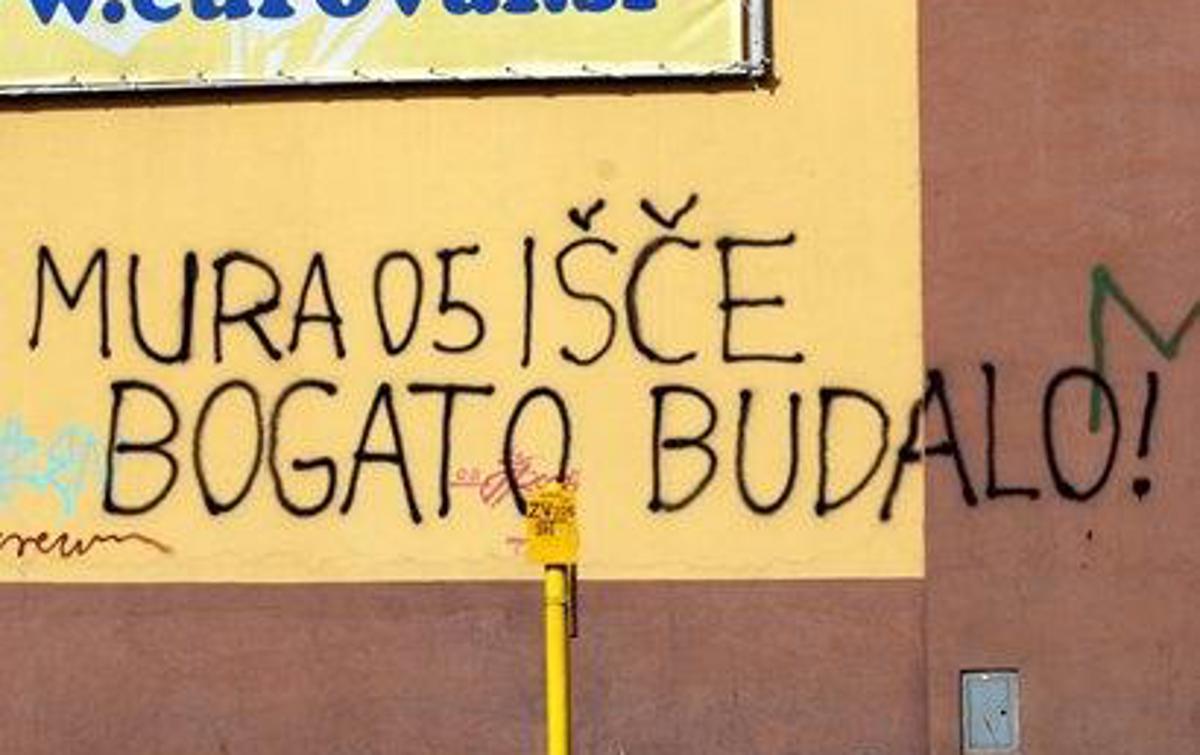 w.eurovar.si
MURA 05 IŠČE
BOGATO BUDALO!